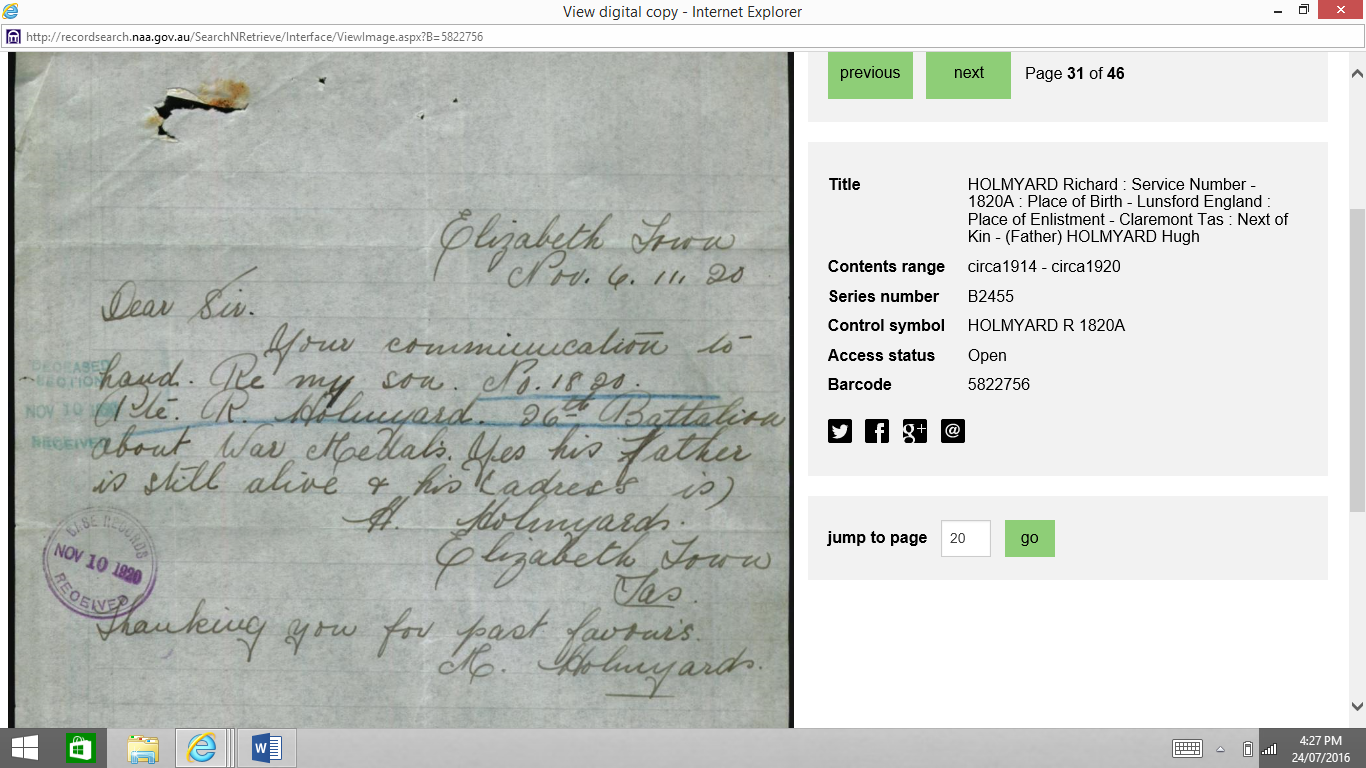 View digital copy - Internet Explorer
http://recordsearch.naa.gov.au/SearchNRetrieve/Interface/ViewImage.aspx?B=5822756
Elizabeth Town
Nov. 6. 11. 20
Dear Sir.
Your communication to
hand. Re my son. No. 1820.
Pte. R. Holmyard. 26th Battalion
about War Medals. Yes his Father
is still alive & his (adress is)
H. Holmyards.
Elizabeth Town
Tas.
Thanking you for past favours.
M. Holmyards.
DECEASED
SECTION
NOV 10 1920
RECEIVED
BASE RECORDS
NOV 10 1920
RECEIVED
previous
next
Page 31 of 46
Title
HOLMYARD Richard : Service Number -
1820A : Place of Birth - Lunsford England :
Place of Enlistment - Claremont Tas : Next of
Kin - (Father) HOLMYARD Hugh
Contents range circa1914 - circa1920
Series number B2455
Control symbol HOLMYARD R 1820A
Access status Open
Barcode 5822756
jump to page 20 go
4:27 PM
24/07/2016